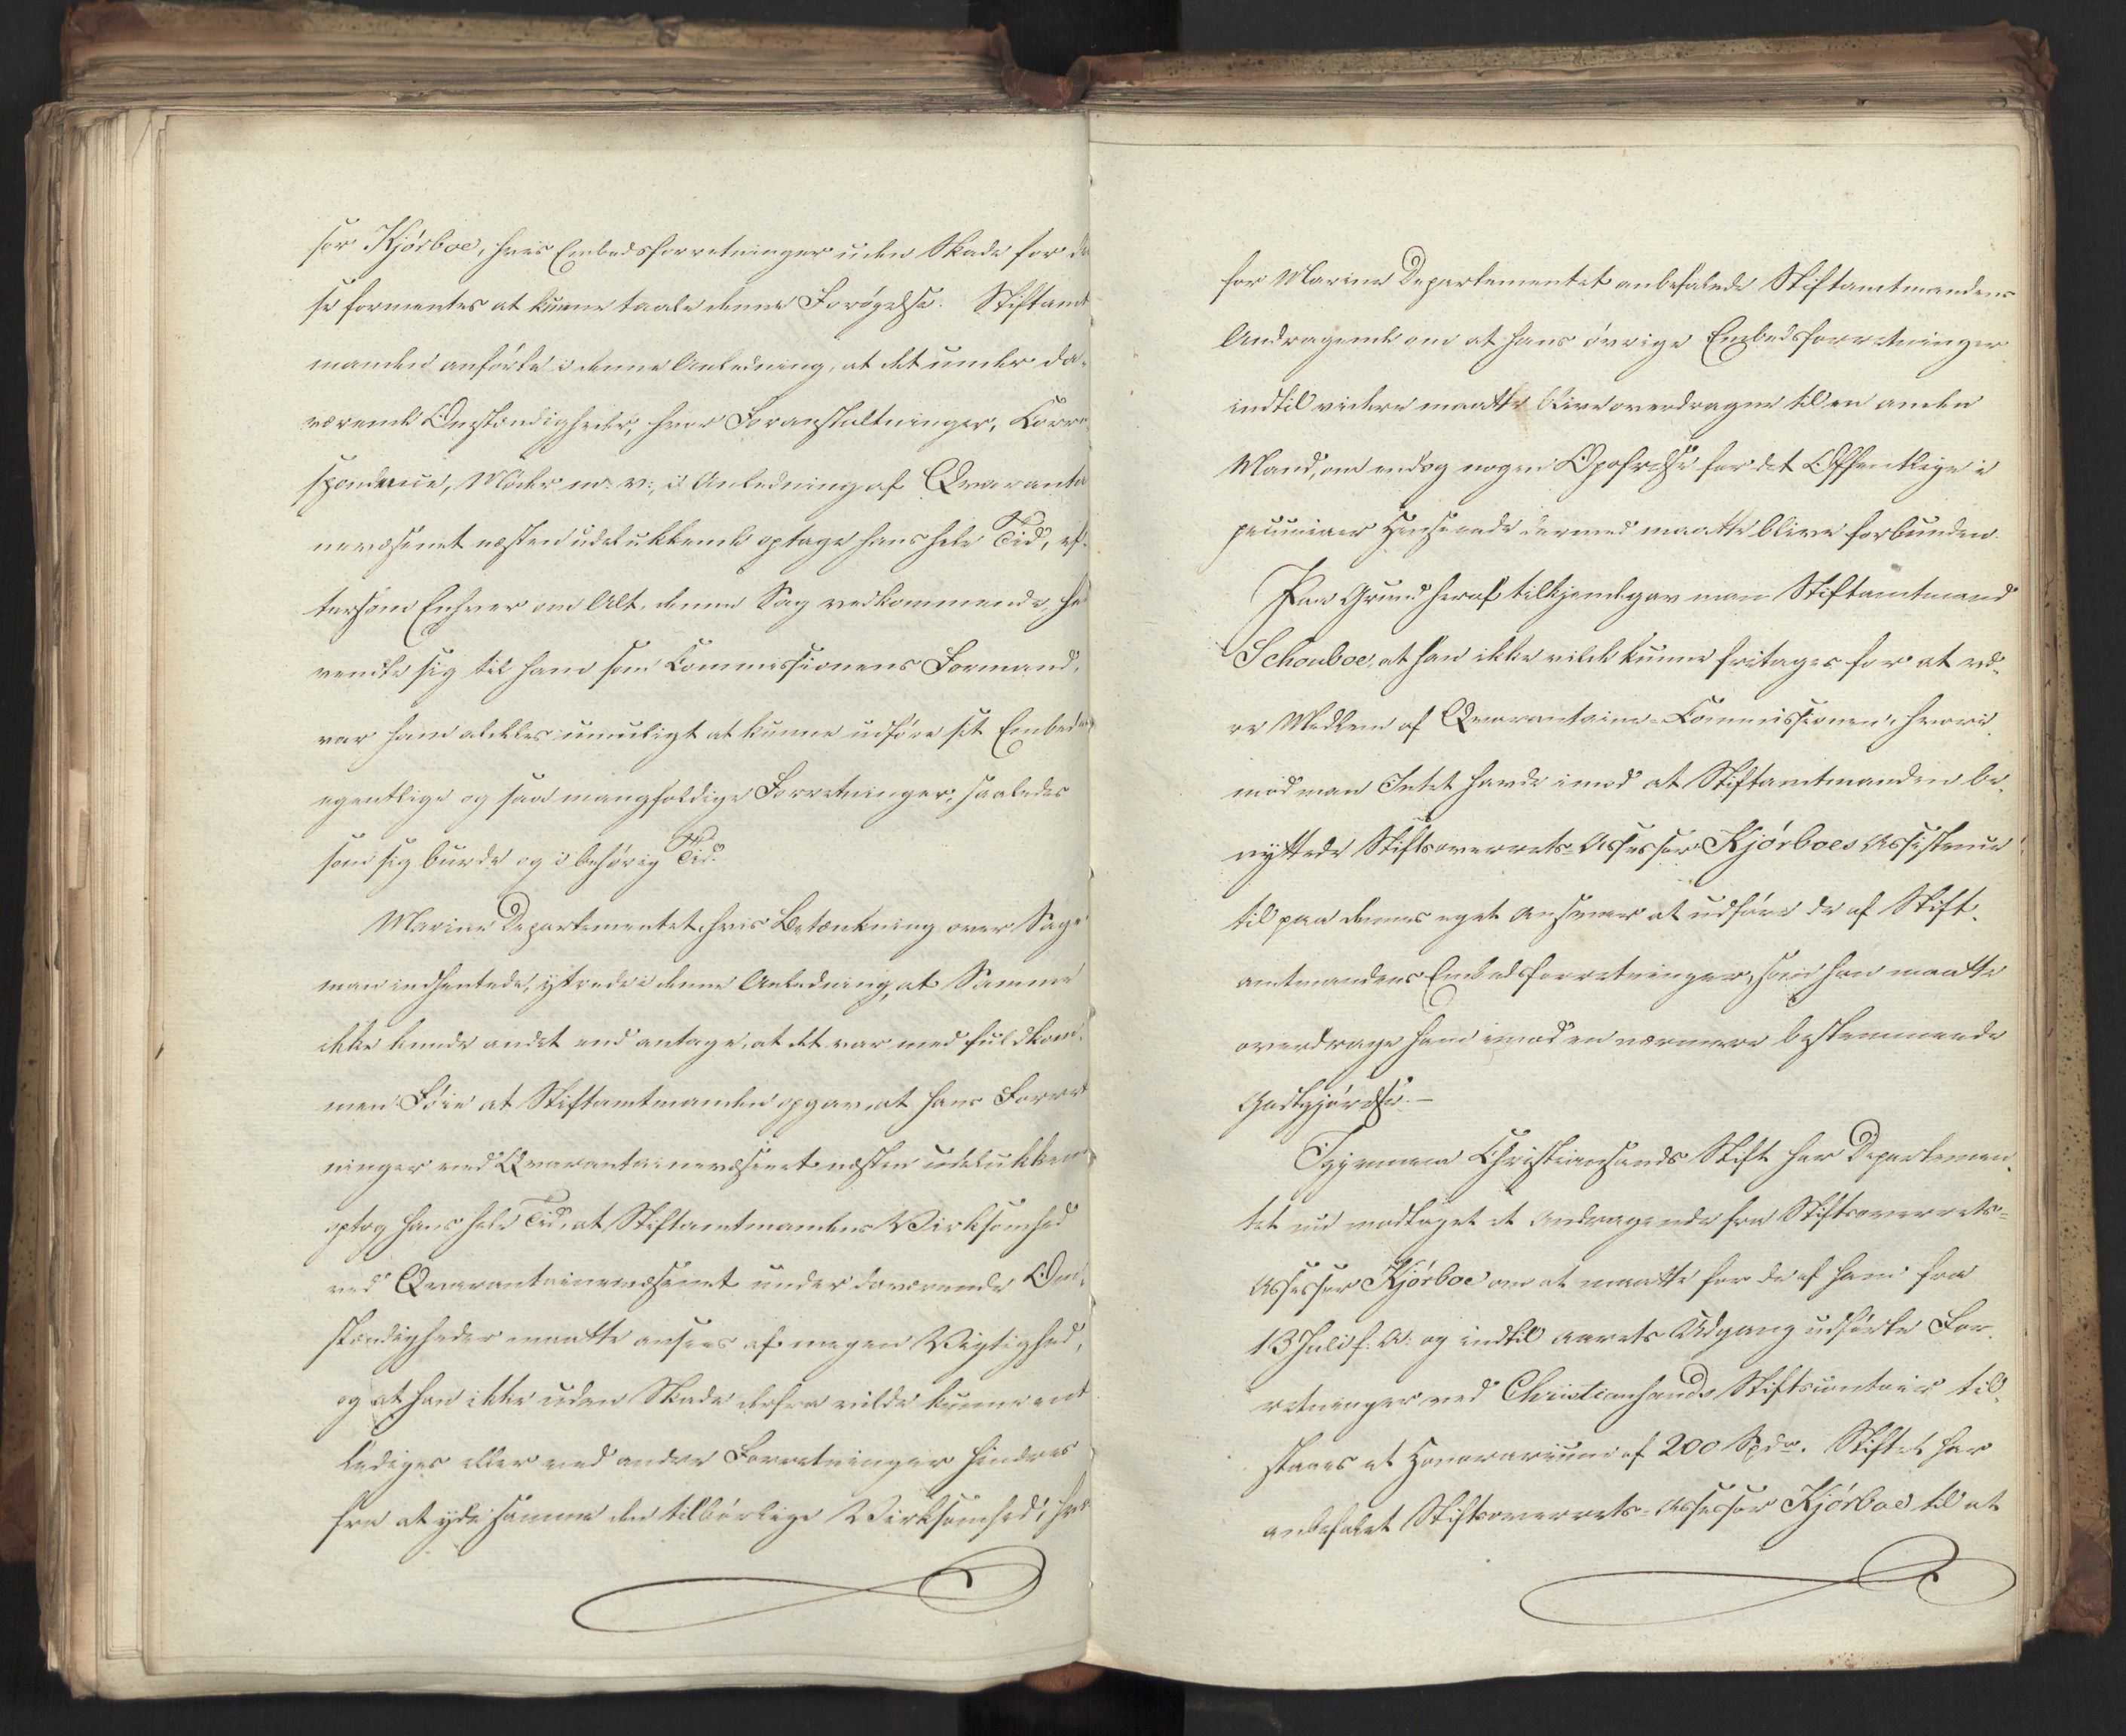 sor Kjørboe, hvis Embedsforretninger uden Skade for di
se formentes at kunne taale denne Forøgelse. Stiftamt
manden anførte i denne Anledning, at det under da-
værende Omstændigheder, hvor Foranstaltninger, Corre
spondence, Møder m: v:, i Anledning af Qvarantai
nevæsenet næsten udelukkende optage hans hele Tid, ef-
tersom Enhver om Alt, denne Sag vedkommende, hen
vendte sig til ham som Commissionens Formand,
var ham aldeles umuligt at kunne udføre sit Embedes
egentlige og saa mangfoldige Forretninger, saaledes
som sig burde og i behørig Tid.
Marine Departementet, hvis Betænkning over Sagen
man indhentede, yttrede i denne Anledning, at Samme
ikke kunde andet end antage, at det var med fuldkom-
men Føie at Stiftamtmanden opgav, at hans Forret
ninger ved Qvarantainevæsenet næsten udelukkende
optog hans hele Tid, at Stiftamtmandens Virksomhed
ved Qvarantainevæsenet under daværende Om-
stændigheder maatte ansees af megen Vigtighed,
og at han ikke uden Skade derfra vilde kunne ent
lediges eller ved andre Forretninger hindres
fra at yde samme den tilbørlige Virksomhed, hvor
for Marine Departementet anbefalede Stiftamtmandens
Andragende om at hans øvrige Embedsforretninger
indtil videre maatte blive overdragne til en anden
Mand, om endog nogen Opofrelse for det Offentlige i
pecuniær Henseende dermed maatte blive forbunden.
Paa Grund heraf tilkjendegav man Stiftamtmand
Schouboe, at han ikke vilde kunne fritages for at væ-
re Medlem af Qvarantaine-Commissionen, hvori-
mod man Intet havde imod at Stiftamtmanden be-
nyttede Stiftsoverrets-Assessor Kjørboes Assistence
til paa dennes eget Ansvar at udføre de af Stift-
amtmandens Embedsforretninger, som han maatte
overdrage ham imod en nærmere bestemmende
Godtgjørelse. -
Igjennem Christiansands Stift har Departemen-
tet nu modtaget et Andragende fra Stiftsoverrets-
Assessor Kjørboe om at maatte for de af ham fra
13 Juli f: A: og indtil Aarets Udgang udførte For-
retninger ved Christiansands Stiftscontoir til-
staaes et Honorarium af 200 Spdr. Stiftet har
anbefalet Stiftsoverrets-Assessor Kjørboe til at